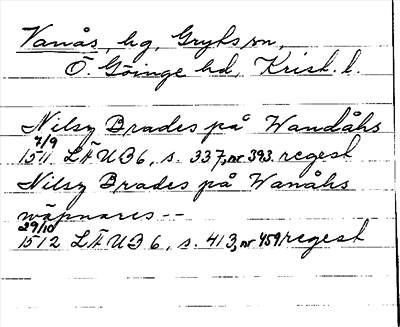 Vanås, hg, Gryts sn,
Ö. Göinge hd, Krist. l.
Nilsz Brades på Wandåhs
7/9
1511 LÄUB 6, s. 337, nr 393. regest
Nilsz Brades på Wanåhs
wäpnares --
29/10
1512 LÄUB 6, s. 413, nr 459 regest